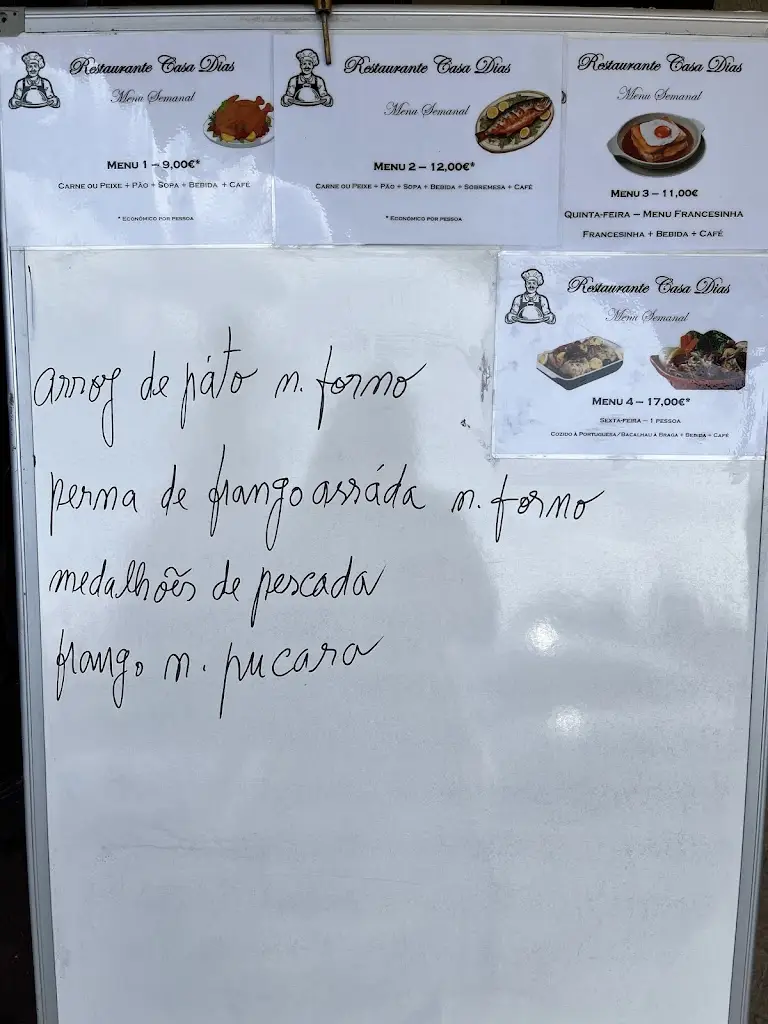 Restaurante Casa Dias
Menu Semanal
Menu 1 – 9,00€*
Carne ou Peixe + Pão + Sopa + Bebida + Café
* Económico por pessoa
Restaurante Casa Dias
Menu Semanal
Menu 2 – 12,00€*
Carne ou Peixe + Pão + Sopa + Bebida + Sobremesa + Café
* Económico por pessoa
Restaurante Casa Dias
Menu Semanal
Menu 3 – 11,00€
Quinta-feira – Menu Francesinha
Francesinha + Bebida + Café
Restaurante Casa Dias
Menu Semanal
Menu 4 – 17,00€*
Sexta-feira – 1 pessoa
Cozido à Portuguesa/Bacalhau à Braga + Bebida + Café
arroz de páto n. forno
perna de frango assáda n. forno
medalhões de pescada
frango n. pucara